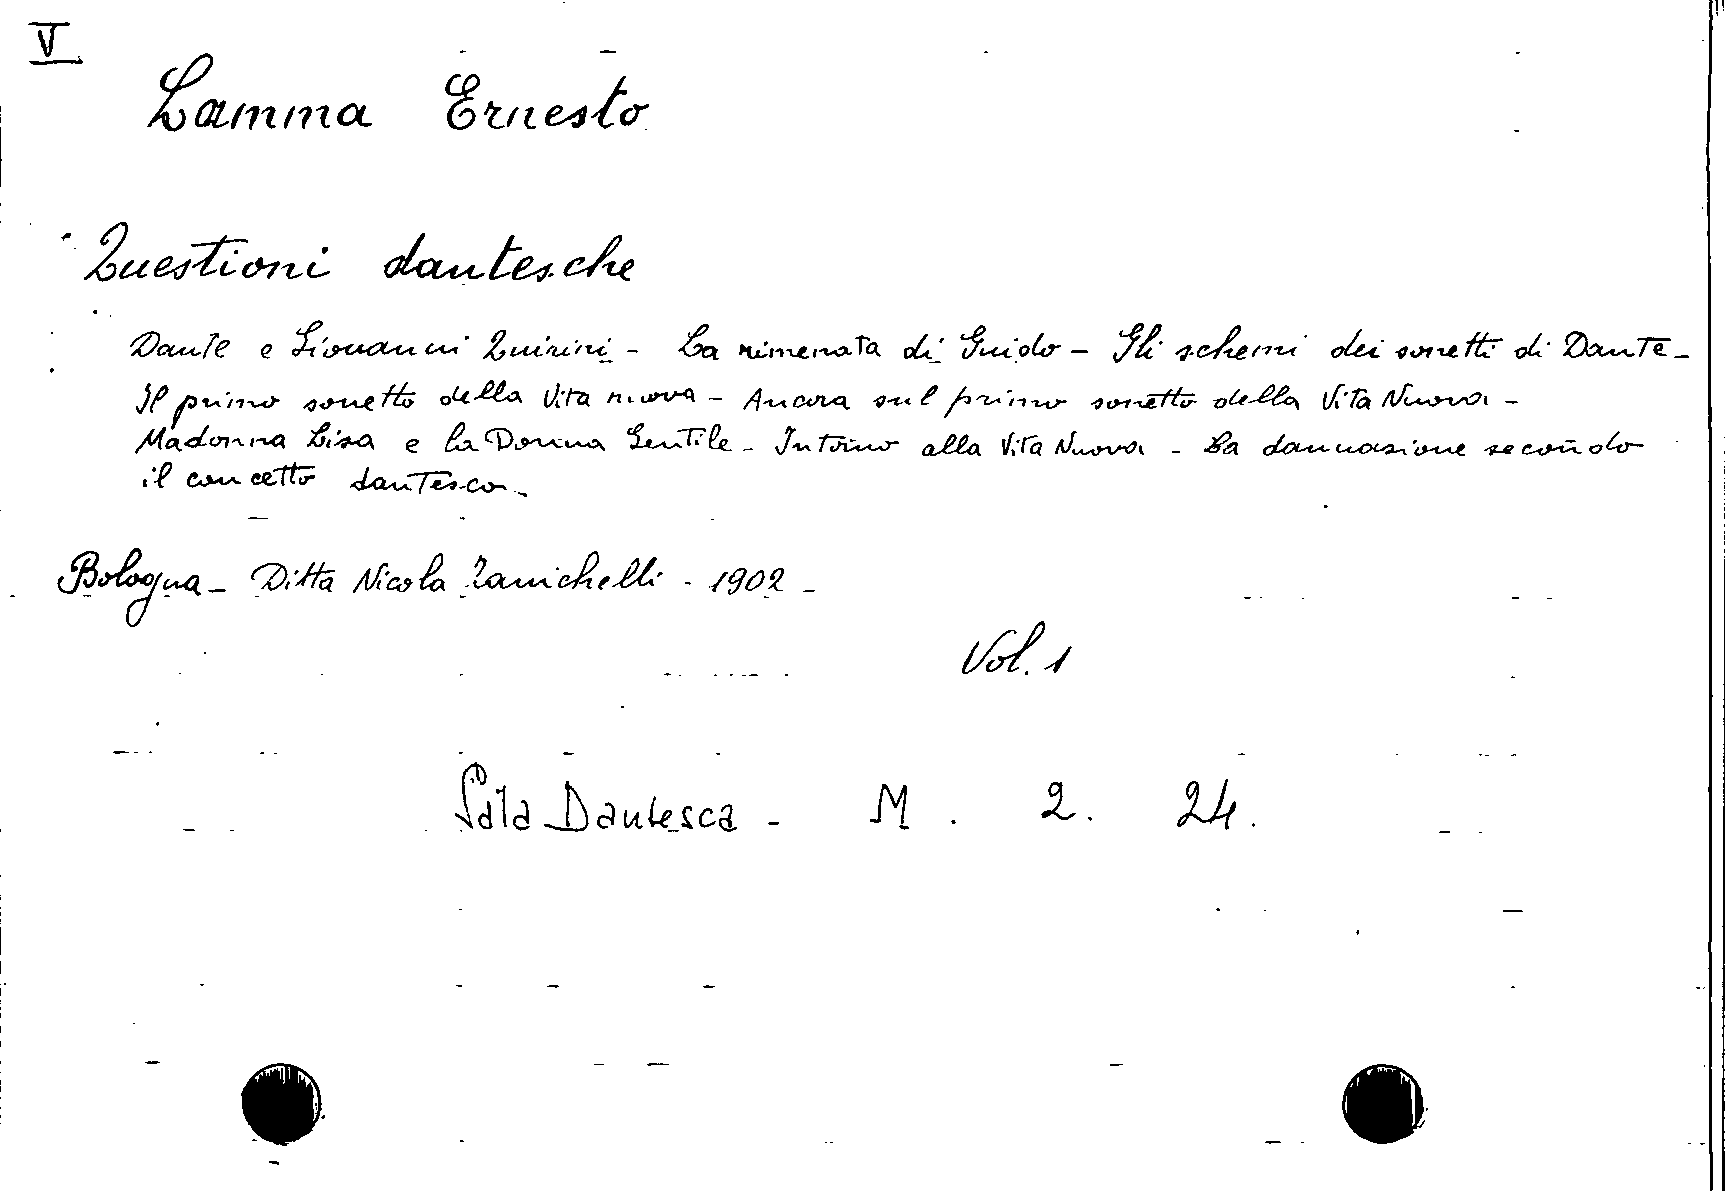 V
Lamma Ernesto
Questioni dantesche
Dante e Giovanni Quirini - La rimenata di Guido - Gli schemi dei sonetti di Dante -
Il primo sonetto della Vita nuova - Ancora sul primo sonetto della Vita Nuova -
Madonna Lisa e la Donna Gentile - Intorno alla Vita Nuova - La dannazione secondo
il concetto dantesco -
Bologna - Ditta Nicola Zanichelli - 1902 -
Vol. 1
Sala Dantesca - M . 2 . 24 .